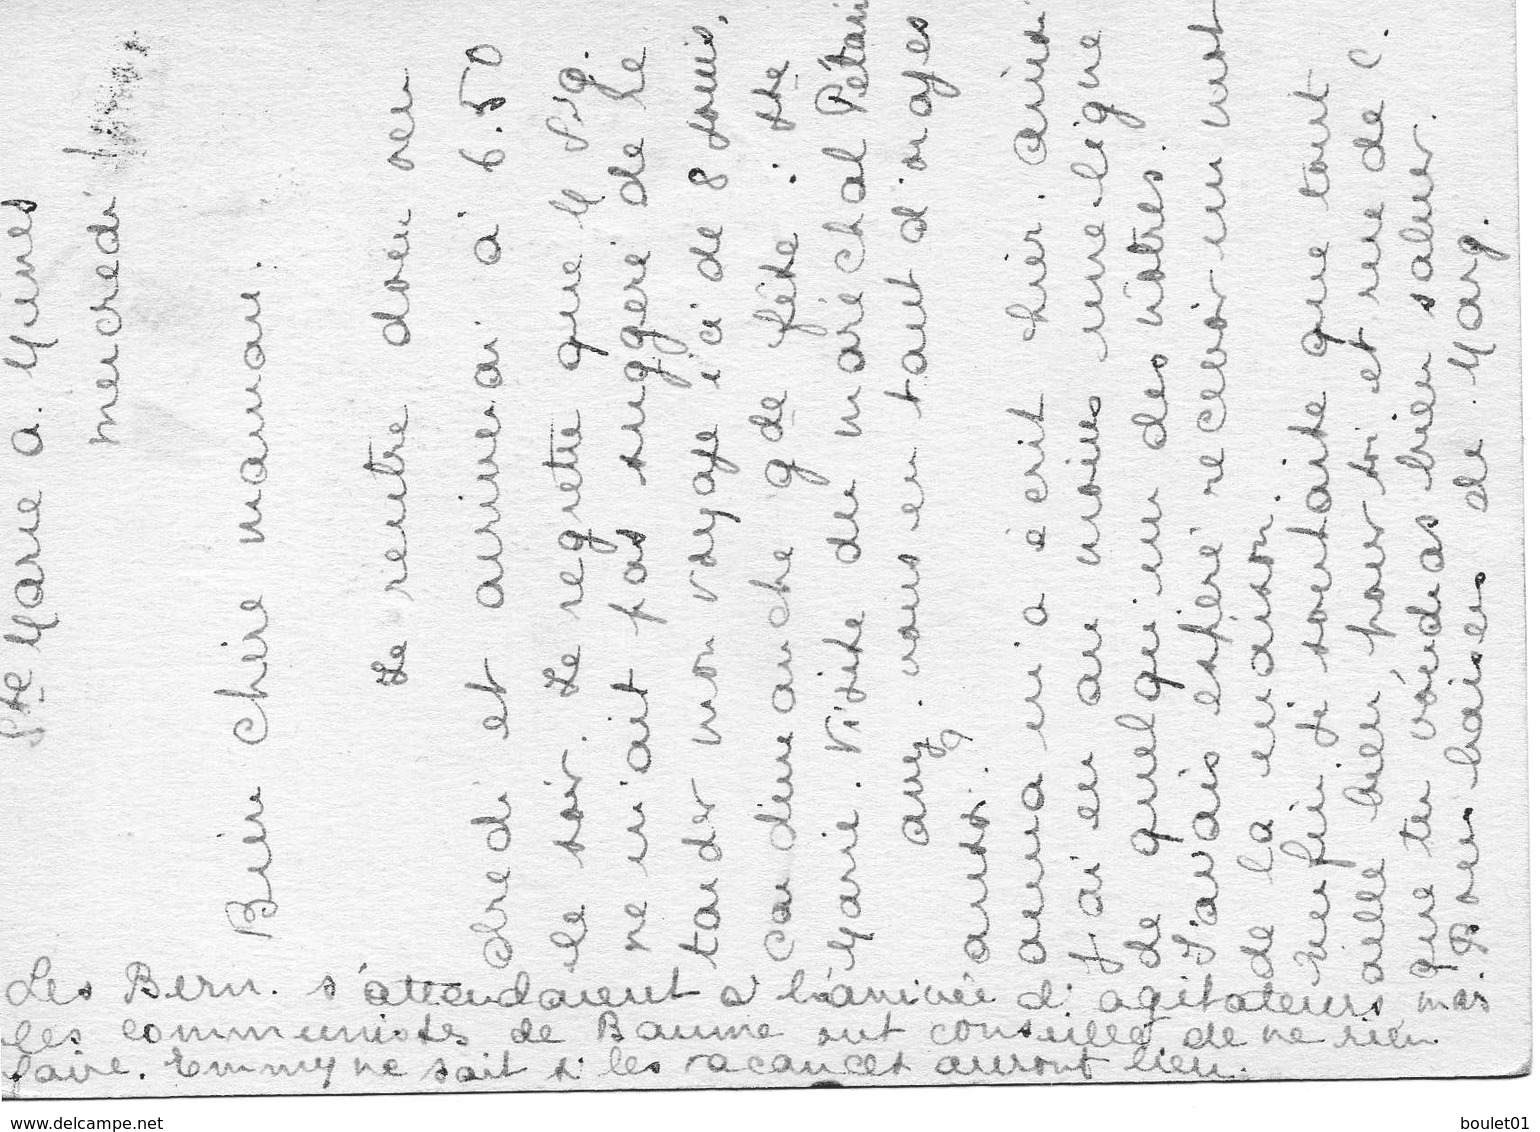 Ste Marie a. Mines
mercredi
Bien chère maman.
Je rentre donc ven
dredi et arriverai à 6.50
le soir. Je regrette que M
ne m'ait pas suggéré de re
tarder mon voyage ici de 8 jours,
car dimanche gde fête : Ste
Marie. Visite du maréchal Pétain
auj. nous en tout d'orages
aussi.
anna m'a écrit hier. ainsi
J'ai eu au moins une ligne
de quelqu'un des nôtres.
J'avais espéré recevoir un mot
de la maison.
Enfin je souhaite que tout
aille bien pour toi et rue de C.
que tu voudras bien saluer.
Bons baisers de Marg.
Les Bern. s'attendaient à l'arrivée d'agitateurs, mais
les communistes de Baume ont conseillé de ne rien
faire. Emmy ne sait si les vacances auront lieu.
www.delcampe.net
boulet01